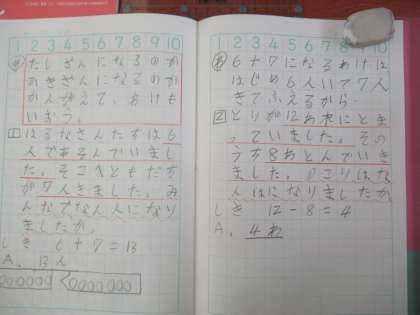 1 2 3 4 5 6 7 8 9 10
め たしざんになるのか
ひきざんになるのか
かんがえて、わけも
いおう。
1 はるなさんたちは6
人であそんでいまし
た。そこへともだち
が7人きました。み
んなでなん人になり
ましたか。
しき 6+7=13
A. 13人
1 2 3 4 5 6 7 8 10
わ 6+7になるわけは
はじめ6人いて7人
きてふえるから。
2 とりが12わ木にとま
っていました。その
うち8わとんでいき
ました。のこりはな
んわになりましたか
しき 12-8=4
A. 4わ